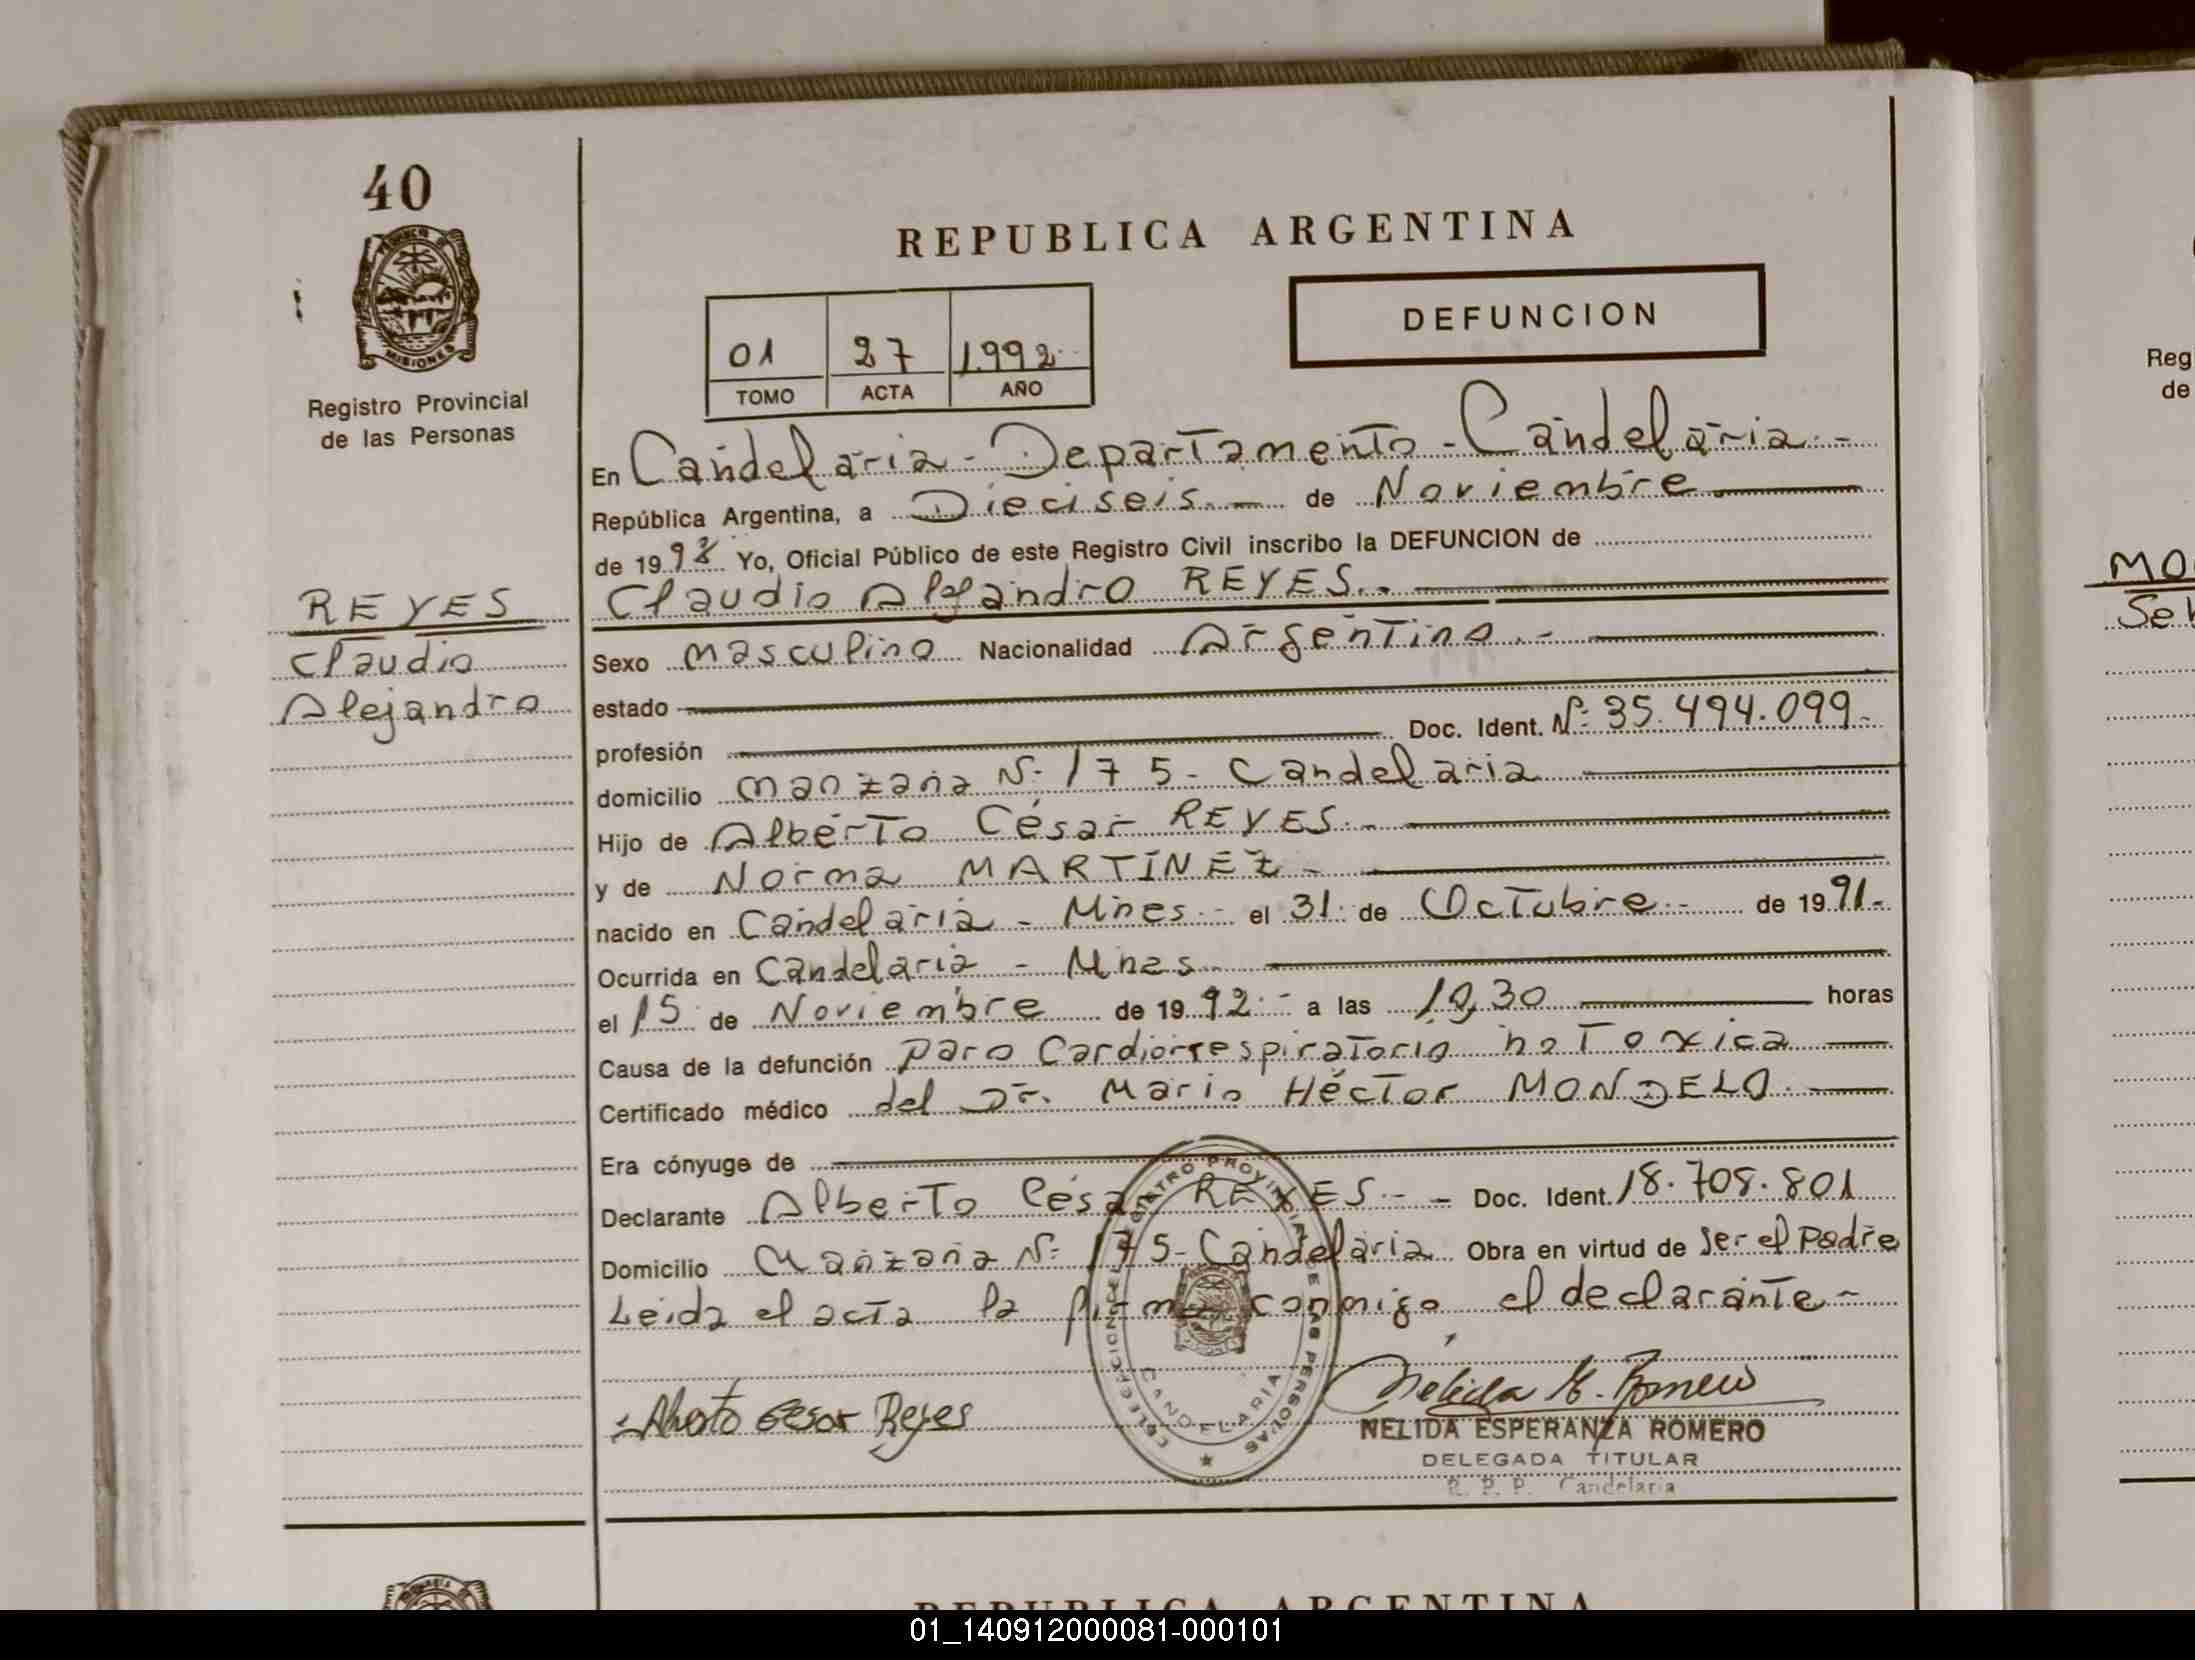 40
REPUBLICA ARGENTINA
DEFUNCION
01 27 1.992
TOMO ACTA AÑO
MISIONES
Registro Provincial
de las Personas
REYES
Claudio
Alejandro
En Candelaria - Departamento - Candelaria.-
República Argentina, a Dieciseis.- de Noviembre.
de 1992 Yo, Oficial Público de este Registro Civil inscribo la DEFUNCION de
Claudio Alejandro REYES.-
Sexo masculino Nacionalidad Argentino.-
estado
profesión Doc. Ident. Nº 35.494.099.-
domicilio manzana Nº 175 - Candelaria
Hijo de Alberto César REYES.-
y de Norma MARTÍNEZ -
nacido en Candelaria - Mnes.- el 31 de Octubre.- de 1991.-
Ocurrida en Candelaria - Mnes.
el 15 de Noviembre de 1992.- a las 30 horas
Causa de la defunción paro Cardiorrespiratorio no Toxica
Certificado médico del Dr. Mario Héctor MONDELO.
Era cónyuge de
Declarante Alberto César REYES.- - Doc. Ident. 18.708.801
Domicilio Manzana Nº 175 - Candelaria Obra en virtud de ser el Padre
Leida el acta la firma conmigo el declarante-
Alberto Cesar Reyes
DELEGACION DEL REGISTRO PROVINCIAL DE LAS PERSONAS
CANDELARIA
Nelida E. Romero
NELIDA ESPERANZA ROMERO
DELEGADA TITULAR
R. P. P. Candelaria
REPUBLICA ARGENTINA
Reg
de
MO
Se
01_140912000081-000101